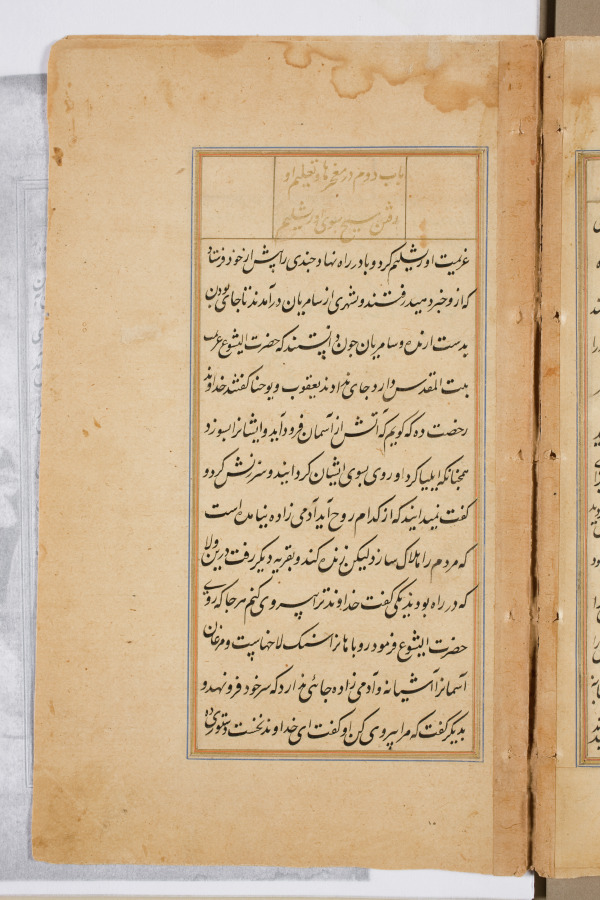 باب دوم در معجزها و تعلیم او
رفتن مسیح بسوی اورشلیم
عزیمت اورشلیم کرد و بادر راه نهاد جندی را پیش از خود فرستاد
که ازو خبر دهید رفتند و بشهری از سامریان درآمدند تا جای بودن
بدست ارند و سامریان جون دانستند که حضرت ایشوع عزیمت
بیت المقدس دارد جای نداد ند یعقوب و یوحنا گفتند خداوند
رخصت ده که کویم که آتش از آسمان فرود آید و ایشانرا بسوزد
همجنانکه ایلیا کرد او روی بسوی ایشان کردانید و سرزنش کرد و
کفت نمیدانید که از کدام روح آید آدمی زاده نیامده است
که مردم را هلاک سازد لیکن زنده کند و بقریه دیکر رفت درین ولا
که در راه بودند یکی گفت خداوند ترا پیروی کنم هر جا که روی
حضرت ایشوع فرمود روباهانرا سنک لاخهاست و مرغان
آسمانرا آشیانه و آدمی زاده جائی ندارد که سر خود فرو نهد و
بدیگر گفت که مرا پیروی کن او گفت ای خداوند نخست دستوری ده